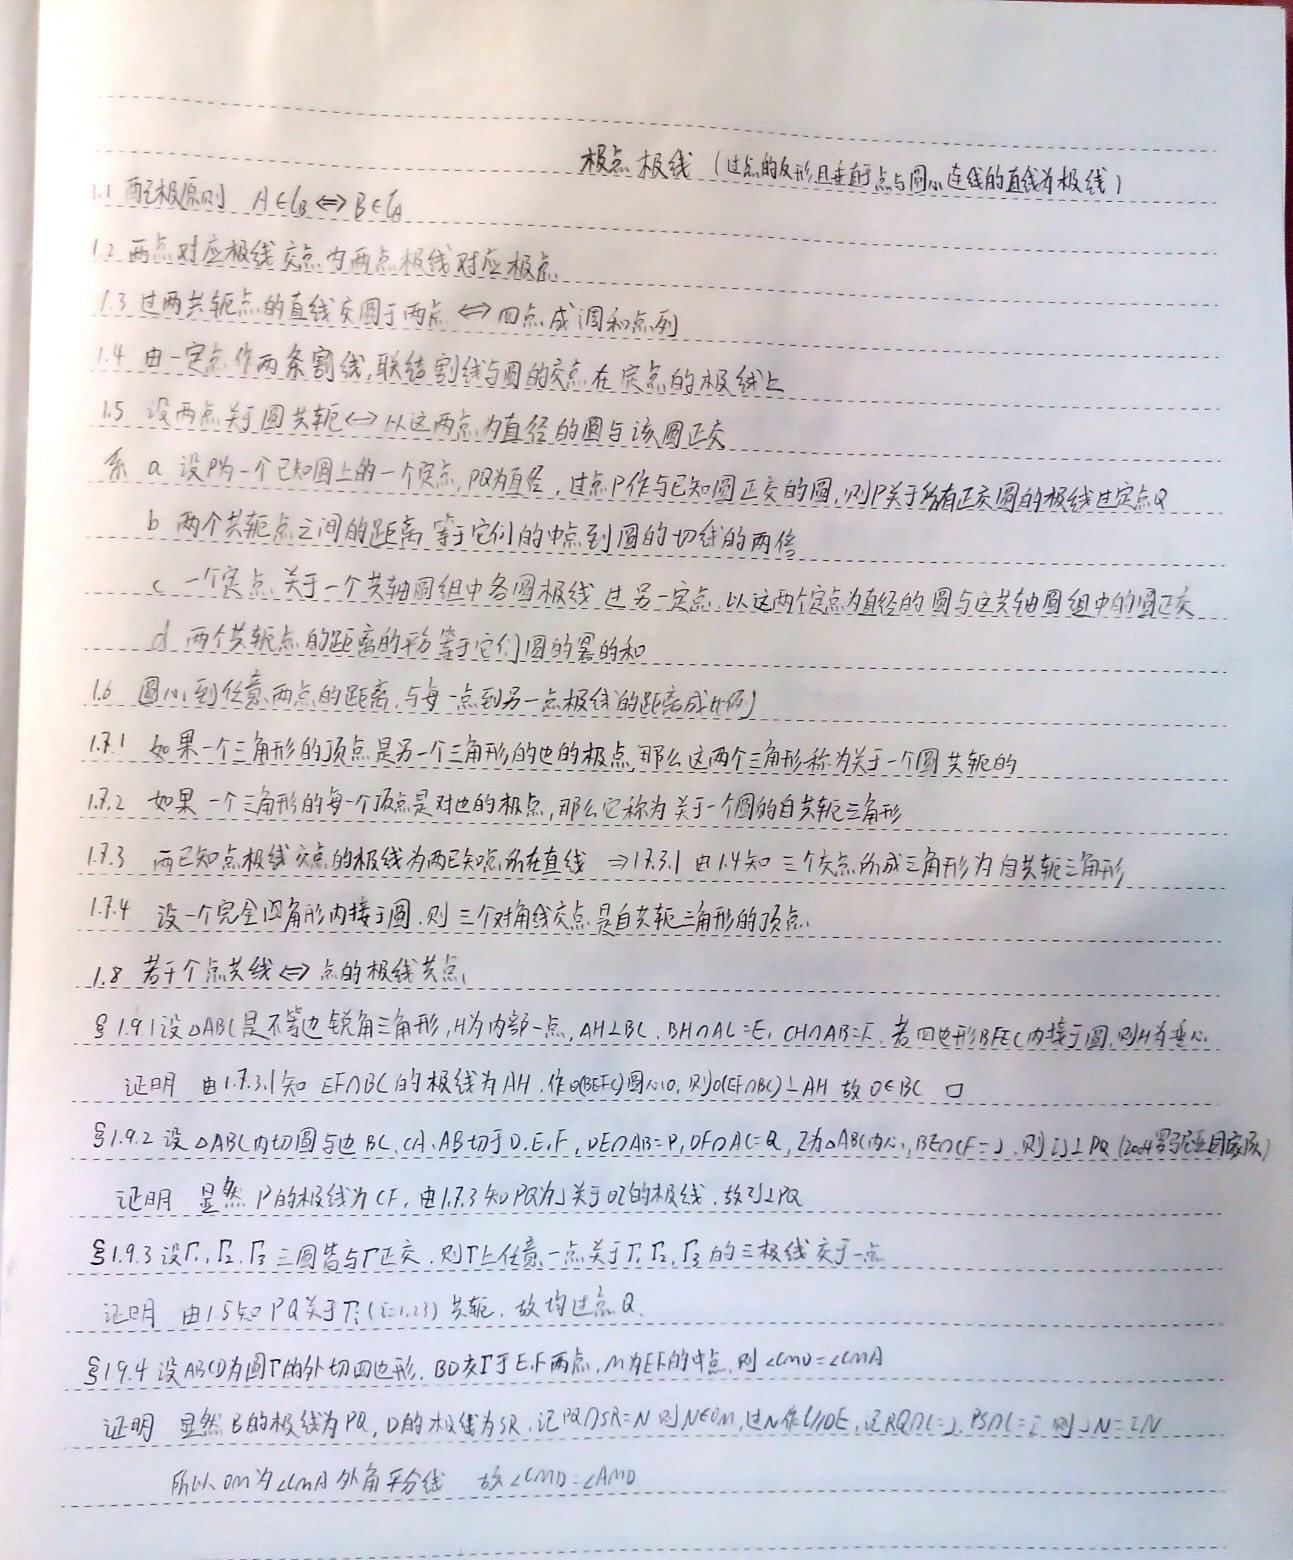 极点 极线 (过点的反形且垂直于点与圆心连线的直线为极线)
1.1 配极原则 A∈l_B ⇔ B∈l_A
1.2 两点对应极线交点为两点极线对应极点
1.3 过两共轭点的直线交圆于两点 ⇔ 四点成调和点列
1.4 由一定点作两条割线,联结割线与圆的交点在定点的极线上
1.5 设两点关于圆共轭 ⇔ 以这两点为直径的圆与该圆正交
系 a 设P为一个已知圆上的一个定点,PQ为直径,过点P作与已知圆正交的圆,则P关于所有正交圆的极线过定点Q
b 两个共轭点之间的距离等于它们的中点到圆的切线的两倍
c 一个定点关于一个共轴圆组中各圆极线过另一定点,以这两个定点为直径的圆与这共轴圆组中的圆正交
d 两个共轭点的距离的平方等于它们圆的幂的和
1.6 圆心到任意两点的距离,与每一点到另一点极线的距离成比例
1.7.1 如果一个三角形的顶点是另一个三角形的边的极点,那么这两个三角形称为关于一个圆共轭的
1.7.2 如果一个三角形的每一个顶点是对边的极点,那么它称为关于一个圆的自共轭三角形
1.7.3 两已知点极线交点的极线为两已知点所在直线 ⇒1.7.3.1 由1.4知 三个交点所成三角形为自共轭三角形
1.7.4 设一个完全四角形内接于圆.则三个对角线交点是自共轭三角形的顶点.
1.8 若干个点共线 ⇔ 点的极线共点
§1.9.1 设△ABC是不等边锐角三角形,H为内部一点,AH⊥BC,BH∩AC=E,CH∩AB=F.若四边形BFEC内接于圆,则H为垂心.
证明 由1.7.3.1知 EF∩BC的极线为AH.作⊙(BEFC)圆心O,则O(EF∩BC)⊥AH 故O∈BC □
§1.9.2 设△ABC内切圆与边BC,CA,AB切于D,E,F,DE∩AB=P,DF∩AC=Q,I为△ABC内心,BE∩CF=J.则IJ⊥PQ (2004 国家队)
证明 显然P的极线为CF,由1.7.3知PQ为J关于⊙I的极线.故IJ⊥PQ
§1.9.3 设Γ₁,Γ₂,Γ₃三圆皆与Γ正交.则Γ上任意一点关于Γ₁,Γ₂,Γ₃的三极线交于一点
证明 由1.5知PQ关于Γᵢ(i=1,2,3)共轭,故均过点Q.
§1.9.4 设ABCD为圆Γ的外切四边形.BD交Γ于E,F两点,M为EF的中点,则∠CMD=∠CMA
证明 显然B的极线为PQ,D的极线为SR,记PQ∩SR=N则N∈OM,过N作l//DE,记RQ∩l=J,PS∩l=I 则JN=IN
所以OM为∠CMA外角平分线 故∠CMD=∠AMD